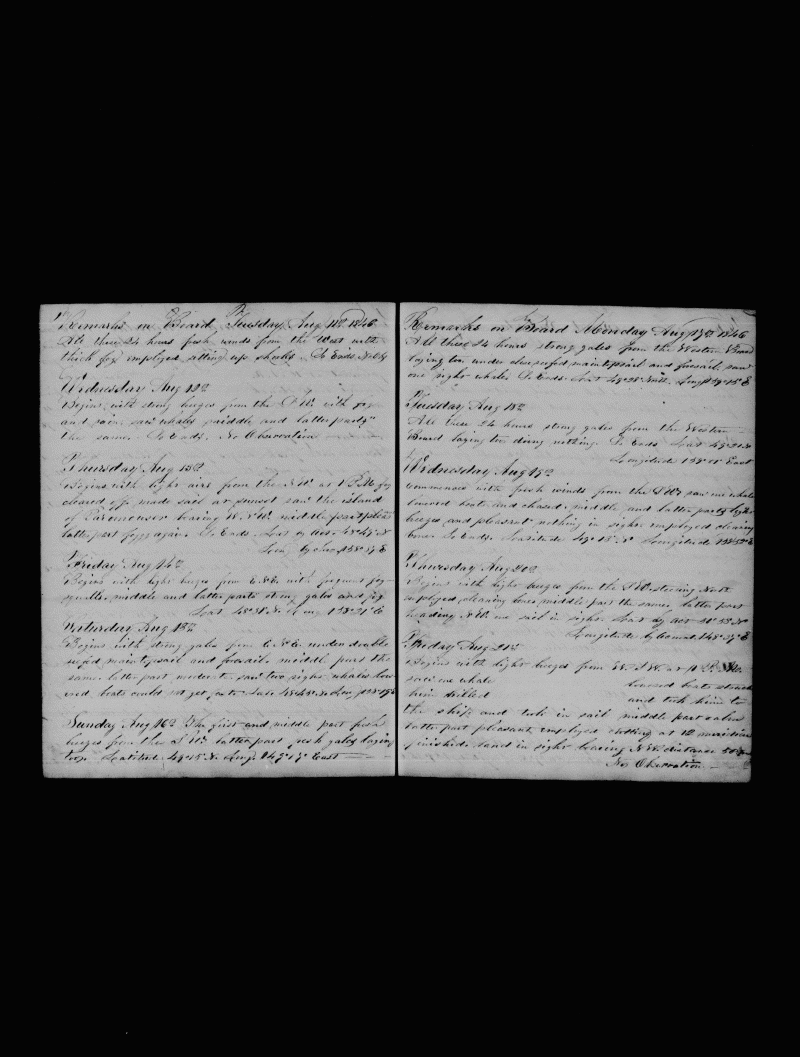 Remarks on Board Tuesday Aug 11th 1846
All these 24 hours fresh winds from the West with
thick fog employed setting up shooks. So Ends. No Ob
Wednesday Aug 12th
Begins with strong breezes from the S W. with fog
and rain. saw whales middle and latter parts
the same. So Ends. No Observation
Thursday Aug 13th
Begins with light airs from the N W at 1 P.M. fog
cleared off. made sail at sunset saw the island
of bearing W. N W. middle part
latter part foggy again. So Ends. Lat by acc.
Lon. by
Friday Aug 14th
Begins with light breezes from E N E with frequent fog
squalls. middle and latter parts strong gales and fog
Lat Long 153° 21' E
Saturday Aug 15th
Begins with strong gales from E N E. under double
reefed maintopsail and foresail. middle part the
same. latter part moderate. saw two right whales low
ered boats could not get fast. Lat 48° 48' N Long
Sunday Aug 16th The first and middle part fresh
breezes from the S W. latter part fresh gales laying
too. Latitude 49° 15' N. Long. East
Remarks on Board Monday Aug 17th 1846
All these 24 hours strong gales from the Western Board
laying too under close reefed maintopsail and foresail. saw
one right whale. So Ends. Lat Long
Tuesday Aug 18th
All these 24 hours strong gales from the Western
Board laying too doing nothing. So Ends Lat 49° 21 N
Longitude East
Wednesday Aug 19th
Commences with fresh winds from the S W. saw one whale
lowered boats and chased. middle and latter parts light
breezes and pleasant nothing in sight. employed cleaning
bone. So Ends. Latitude 49° 15' N Longitude
Thursday Aug 20th
Begins with light breezes from the S W. steering
employed cleaning bone, middle part the same. latter part
heading N W. one sail in sight. Lat by acc
Longitude by
Friday Aug 21st
Begins with light breezes from W. S W. at P. M.
saw one whale lowered boats struck
him and took him to
the ship and took in sail middle part calm
latter part pleasant, employed cutting at 12 meridian
finished. land in sight bearing N W. distance
No Observation.